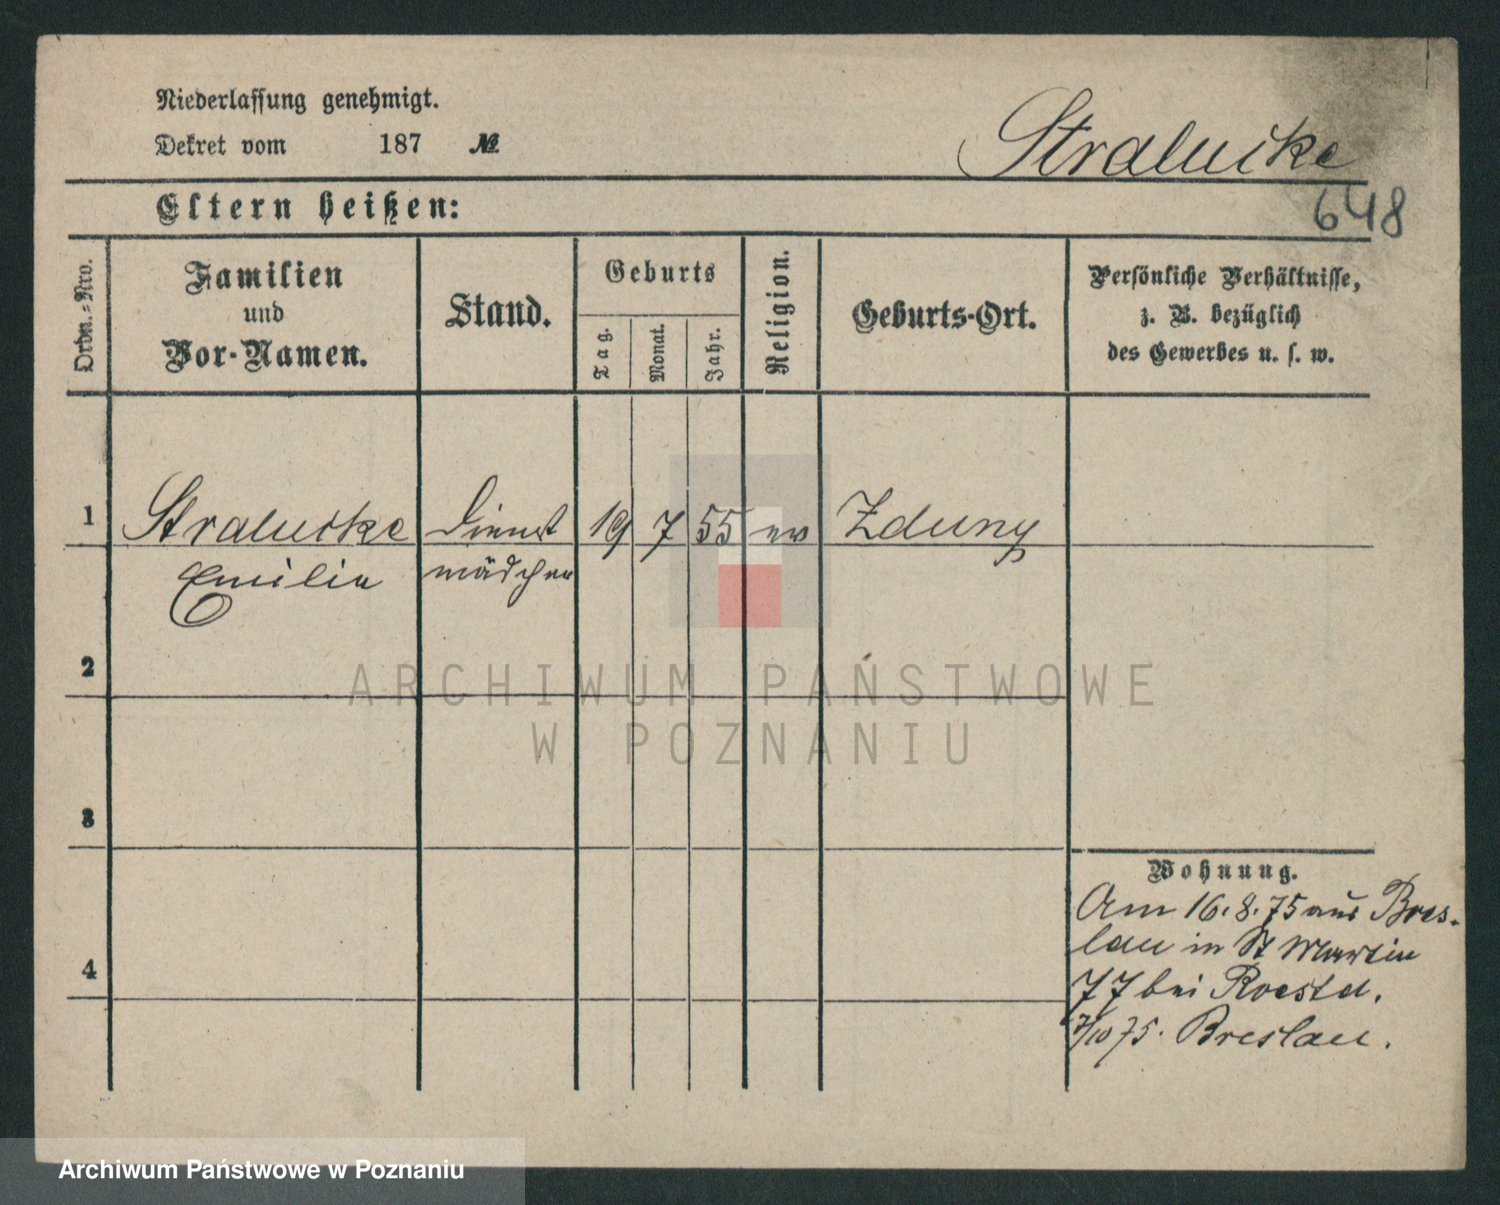 Niederlassung genehmigt.
Dekret vom 187 №
648
Eltern heißen:
Ordn.-Nro.
Familien
und
Vor-Namen.
Stand.
Geburts
Tag.
Monat.
Jahr.
Religion.
Geburts-Ort.
Persönliche Verhältnisse,
z. B. bezüglich
des Gewerbes u. s. w.
1 Dienst 19 7 55 ev Zduny
Emilie mädchen
2
3
4
Wohnung.
Am 16.8.75 aus Bres-
lau in St Martin
77 bei
7/10 75. Breslau.
ARCHIWUM PAŃSTWOWE
W POZNANIU
Archiwum Państwowe w Poznaniu